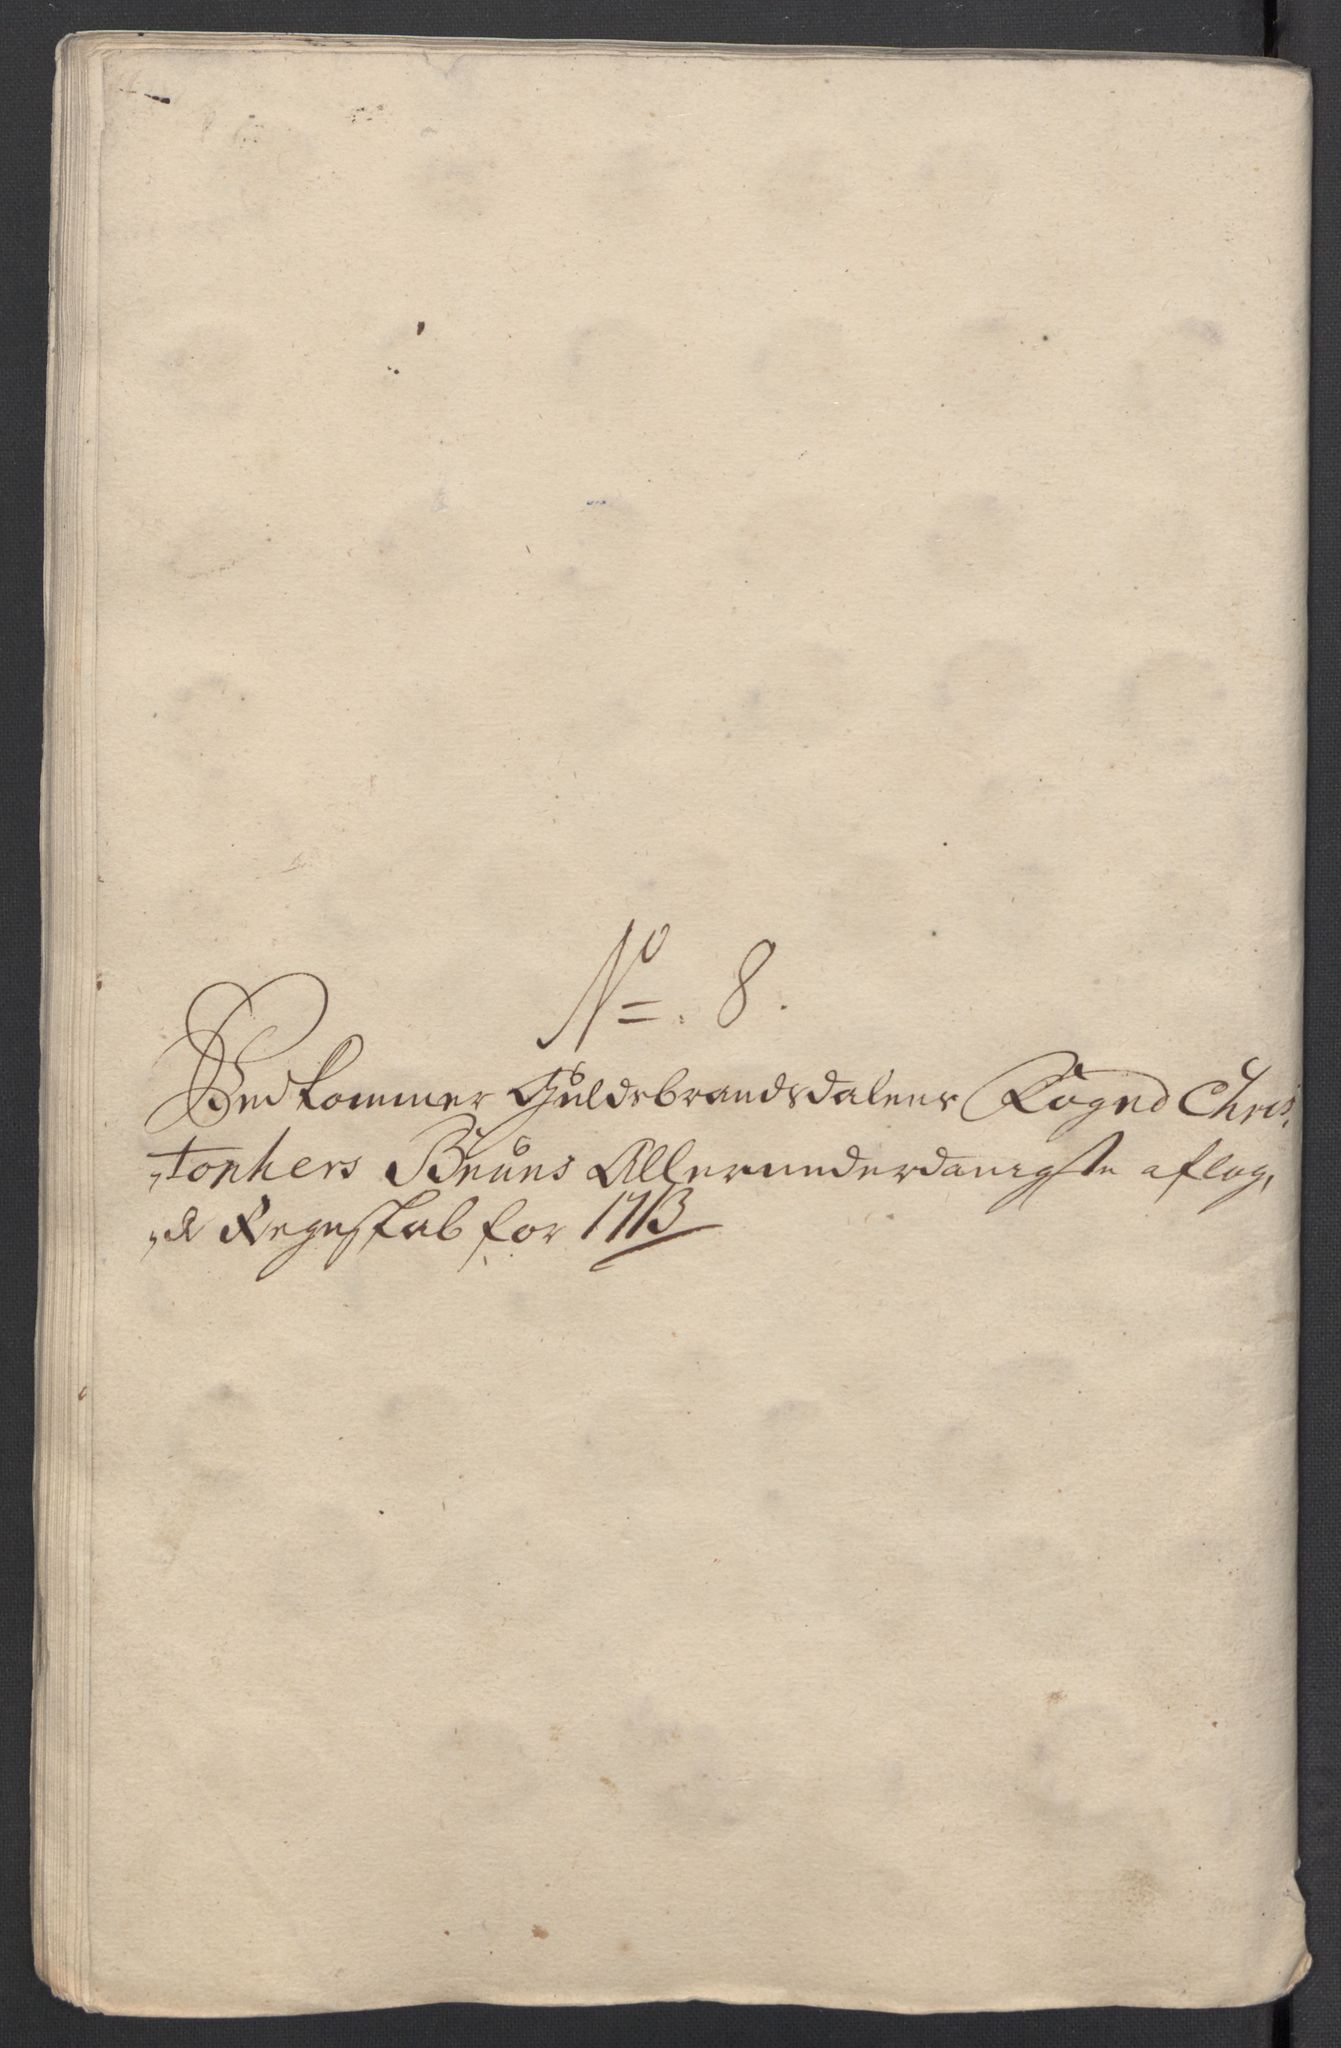 No. 8.
Vedkommer Guldsbrandsdalens Foged Chris,
,tophers Bruuns Allerunderdanigste aflag,
,de Regnskab for 1713